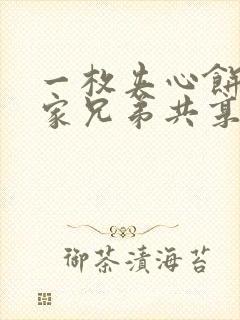 一枚夹心餅
家兄弟共享
御茶漬海苔